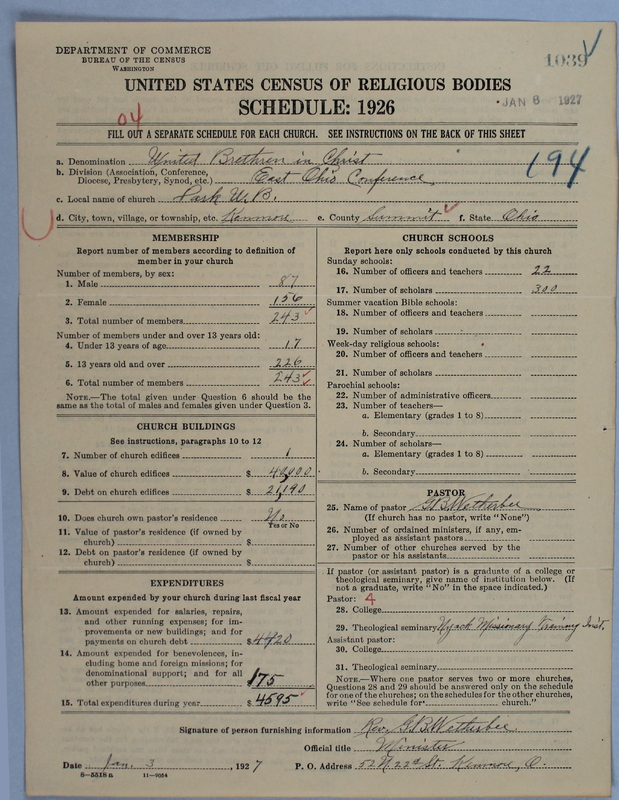 DEPARTMENT OF COMMERCE
BUREAU OF THE CENSUS
WASHINGTON
1039
UNITED STATES CENSUS OF RELIGIOUS BODIES
SCHEDULE: 1926
JAN 6 1927
04
FILL OUT A SEPARATE SCHEDULE FOR EACH CHURCH. SEE INSTRUCTIONS ON THE BACK OF THIS SHEET
194
a. Denomination United Brethren in Christ
b. Division (Association, Conference, Diocese, Presbytery, Synod, etc.) East Ohio Conference
c. Local name of church Park U.B.
d. City, town, village, or township, etc. Kenmore e. County Summit f. State Ohio
MEMBERSHIP
Report number of members according to definition of
member in your church
Number of members, by sex:
1. Male 87
2. Female 156
3. Total number of members 243
Number of members under and over 13 years old:
4. Under 13 years of age 17
5. 13 years old and over 226
6. Total number of members 243
NOTE.—The total given under Question 6 should be the
same as the total of males and females given under Question 3.
CHURCH BUILDINGS
See instructions, paragraphs 10 to 12
7. Number of church edifices 1
8. Value of church edifices $ 40,000
9. Debt on church edifices $ 21,190
10. Does church own pastor's residence No
Yes or No
11. Value of pastor's residence (if owned by
church) $
12. Debt on pastor's residence (if owned by
church) $
EXPENDITURES
Amount expended by your church during last fiscal year
13. Amount expended for salaries, repairs,
and other running expenses; for im-
provements or new buildings; and for
payments on church debt $ 4420
14. Amount expended for benevolences, in-
cluding home and foreign missions; for
denominational support; and for all
other purposes 175
15. Total expenditures during year $ 4595
CHURCH SCHOOLS
Report here only schools conducted by this church
Sunday schools:
16. Number of officers and teachers 22
17. Number of scholars 300
Summer vacation Bible schools:
18. Number of officers and teachers
19. Number of scholars
Week-day religious schools:
20. Number of officers and teachers
21. Number of scholars
Parochial schools:
22. Number of administrative officers
23. Number of teachers—
a. Elementary (grades 1 to 8)
b. Secondary
24. Number of scholars—
a. Elementary (grades 1 to 8)
b. Secondary
PASTOR
25. Name of pastor G.B. Wetherbee
(If church has no pastor, write "None")
26. Number of ordained ministers, if any, em-
ployed as assistant pastors
27. Number of other churches served by the
pastor or his assistants
If pastor (or assistant pastor) is a graduate of a college or
theological seminary, give name of institution below. (If
not a graduate, write "No" in the space indicated.)
Pastor: 4
28. College
29. Theological seminary Nyack Missionary Training Inst.
Assistant pastor:
30. College
31. Theological seminary
NOTE.—Where one pastor serves two or more churches,
Questions 28 and 29 should be answered only on the schedule
for one of the churches; on the schedules for the other churches,
write "See schedule for church."
Signature of person furnishing information Rev. G.B. Wetherbee
Official title Minister
Date Jan. 3, 1927 P. O. Address 52 N. 22d St. Kenmore, O.
8—5518 a 11—9054